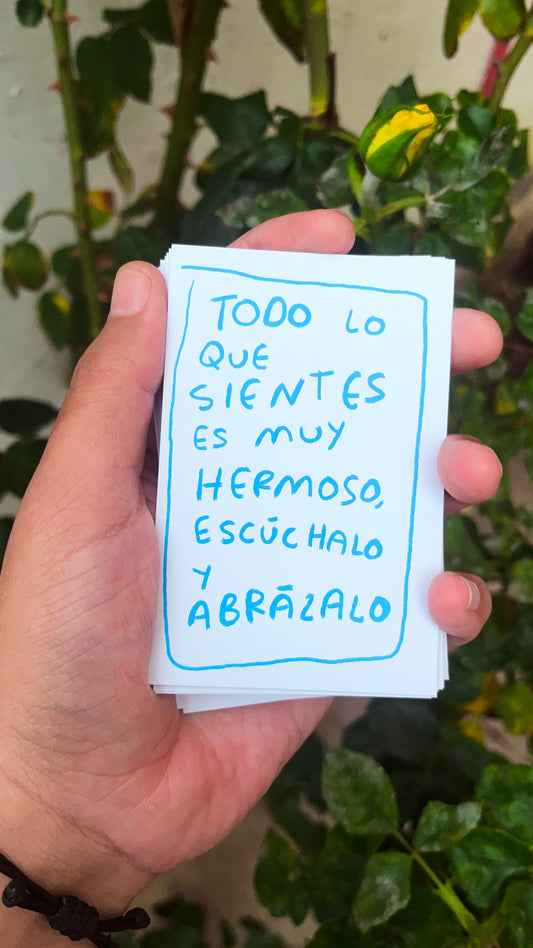 TODO LO
QUE
SIENTES
ES MUY
HERMOSO,
ESCÚCHALO
Y
ABRÁZALO